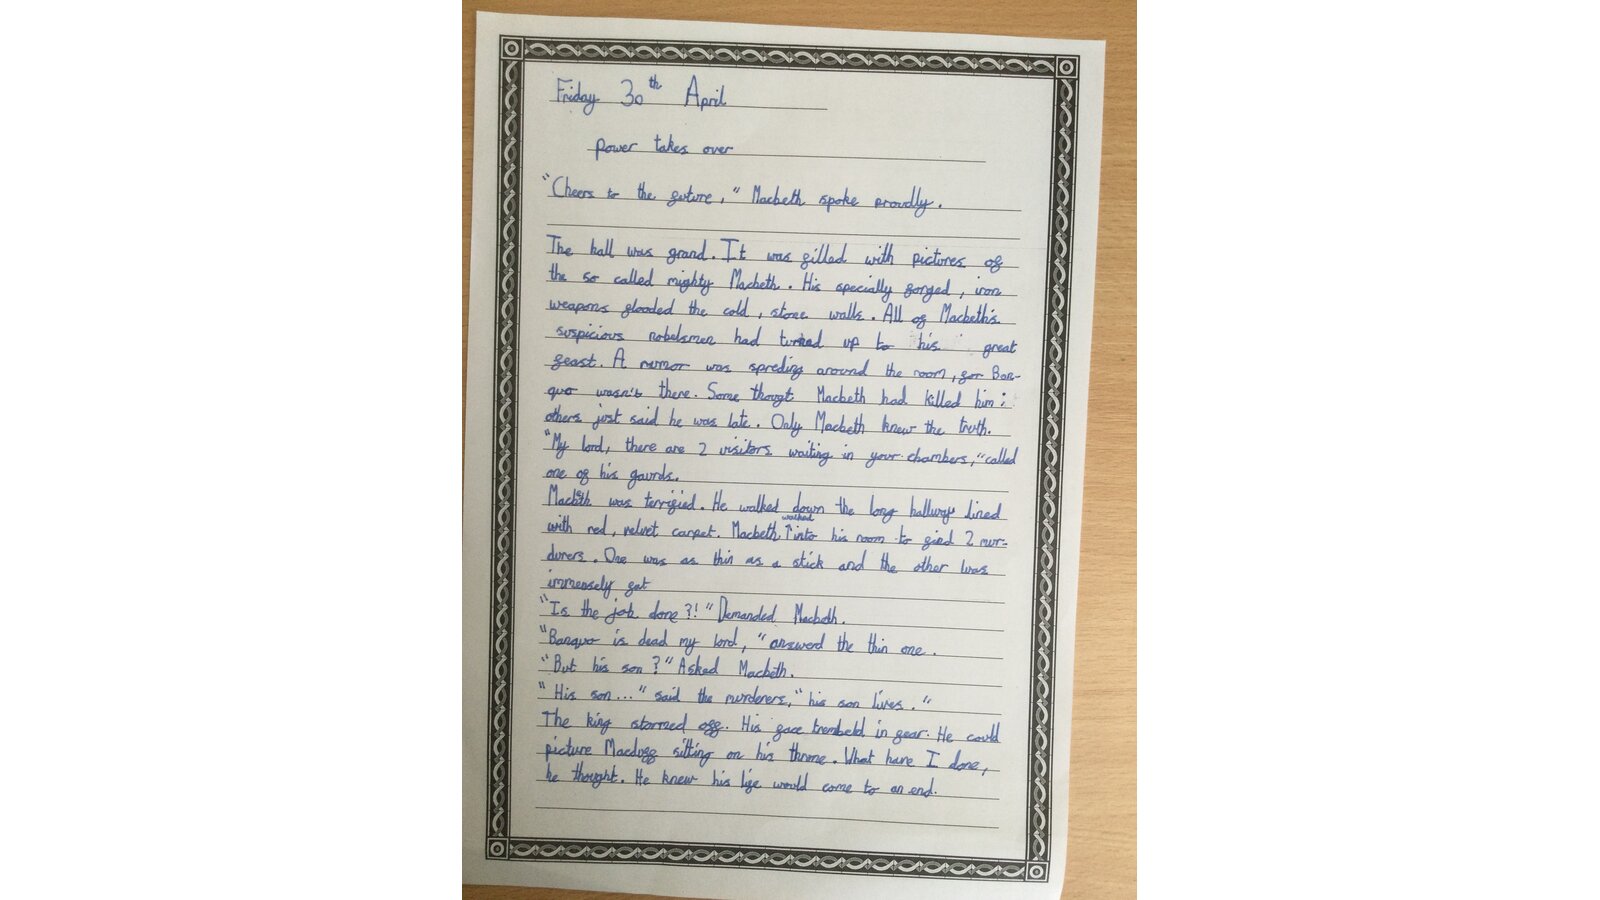 Friday 30th April
power takes over
"Cheers to the future," Macbeth spoke proudly.
The hall was grand. It was filled with pictures of
the so called mighty Macbeth. His specially forged, iron
weapons flooded the cold, stone walls. All of Macbeth's
suspicious nobelsmen had turned up to his great
feast. A rumor was spreding around the room, for Ban-
quo wasn't there. Some thougt Macbeth had killed him;
others just said he was late. Only Macbeth knew the truth.
"My lord, there are 2 visitors waiting in your chambers," called
one of his gaurds.
Macbeth was terrified. He walked down the long hallway lined
with red, velvet carpet. Macbeth walked into his room to find 2 mur-
durers. One was as thin as a stick and the other was
immensely fat
"Is the job done?!" Demanded Macbeth.
"Banquo is dead my lord," answerd the thin one.
"But his son?" Asked Macbeth.
"His son..." said the murderers," his son lives."
The king stormed off. His face trembeld in fear. He could
picture Macduff sitting on his throne. What have I done,
he thought. He knew his life would come to an end.